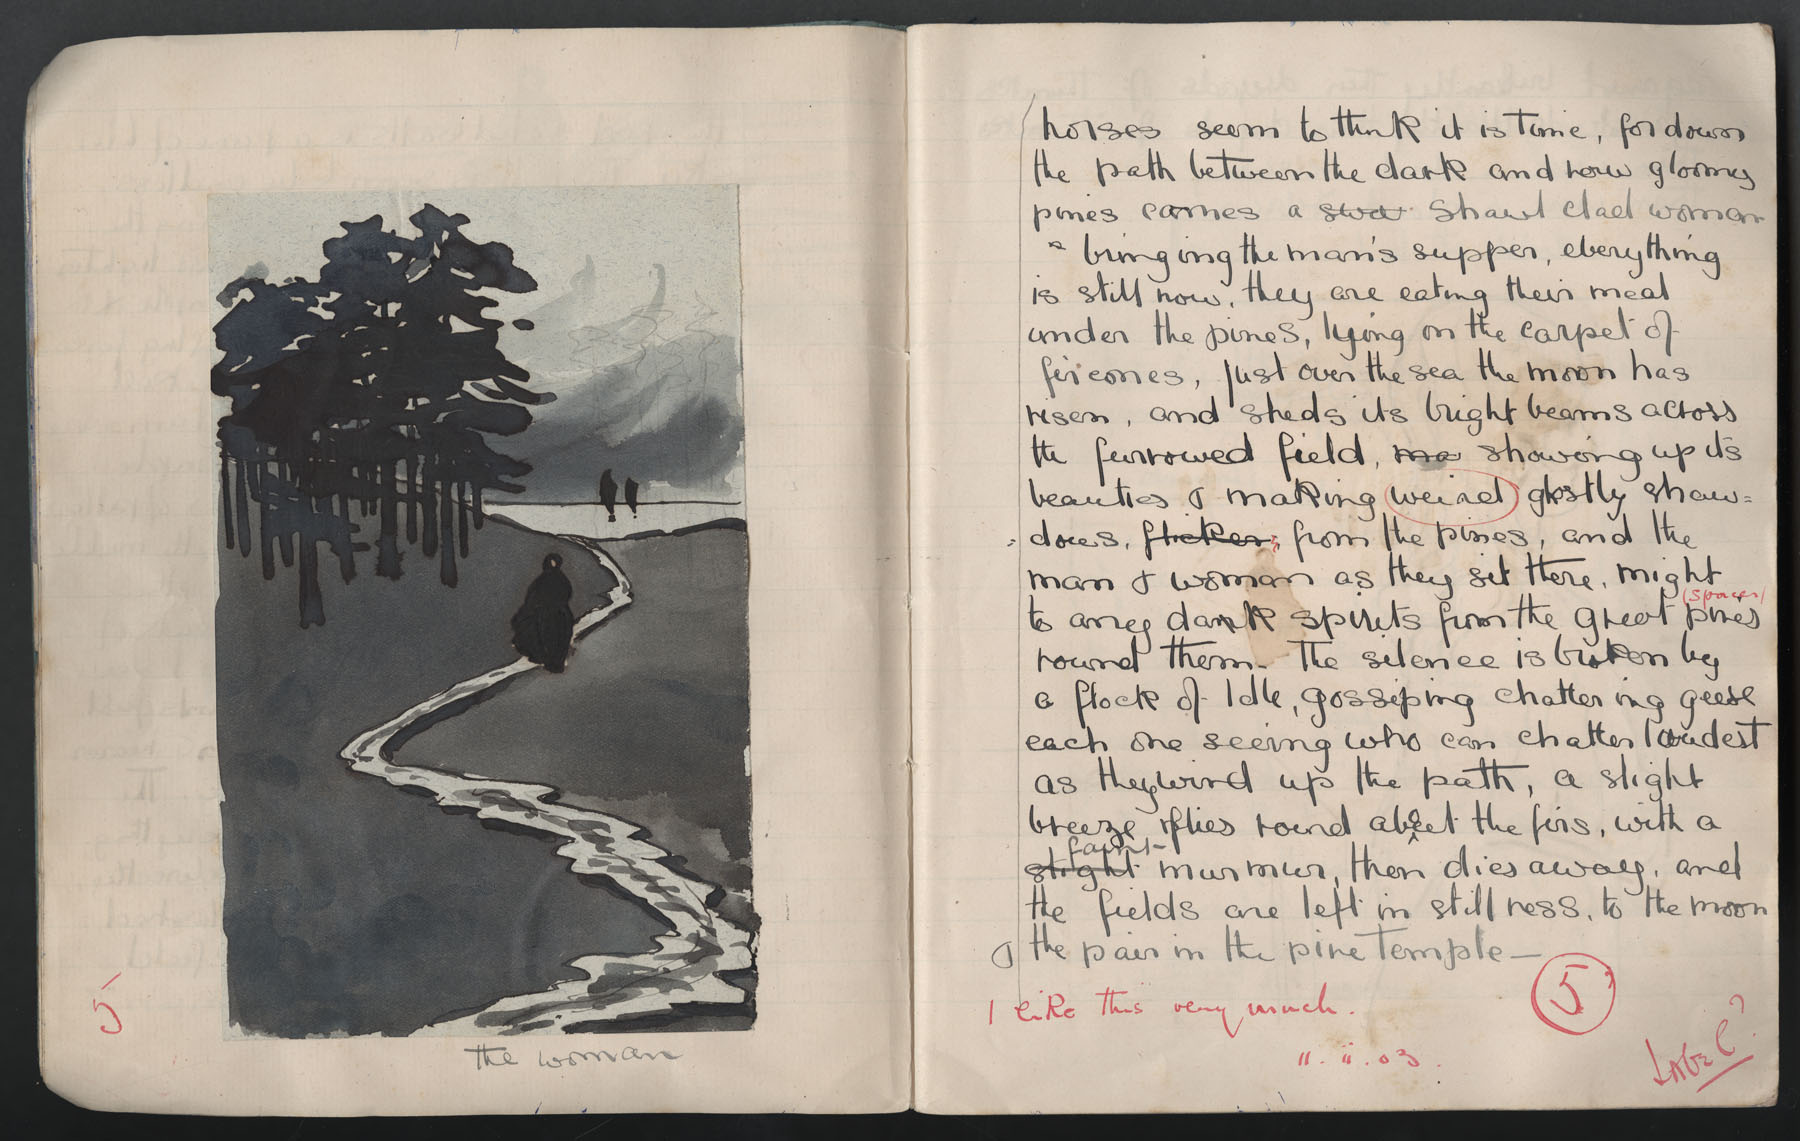 5
the woman
horses seem to think it is time, for down
the path between the dark and now gloomy
pines comes a swa shawl clad woman
bringing the man's supper, everything
is still now, they are eating their meal
under the pines, lying on the carpet of
fir cones, just over the sea the moon has
risen, and sheds its bright beams across
the furrowed field, ma showing up its
beauties & making weird ghostly shaw=
dows, flicker, from the pines, and the
man & woman as they sit there, might
(spaces)
to aney dark spirits from the great pines
round them. The silence is broken by
a flock of Idle, gossiping chattering geese
each one seeing who can chatter loudest
as they wind up the path, a slight
breeze flies round about the firs, with a
faint
slight murmur, then dies away, and
the fields are left in stillness, to the moon
& the pair in the pine temple —
I like this very much.
5
11.ii.03.